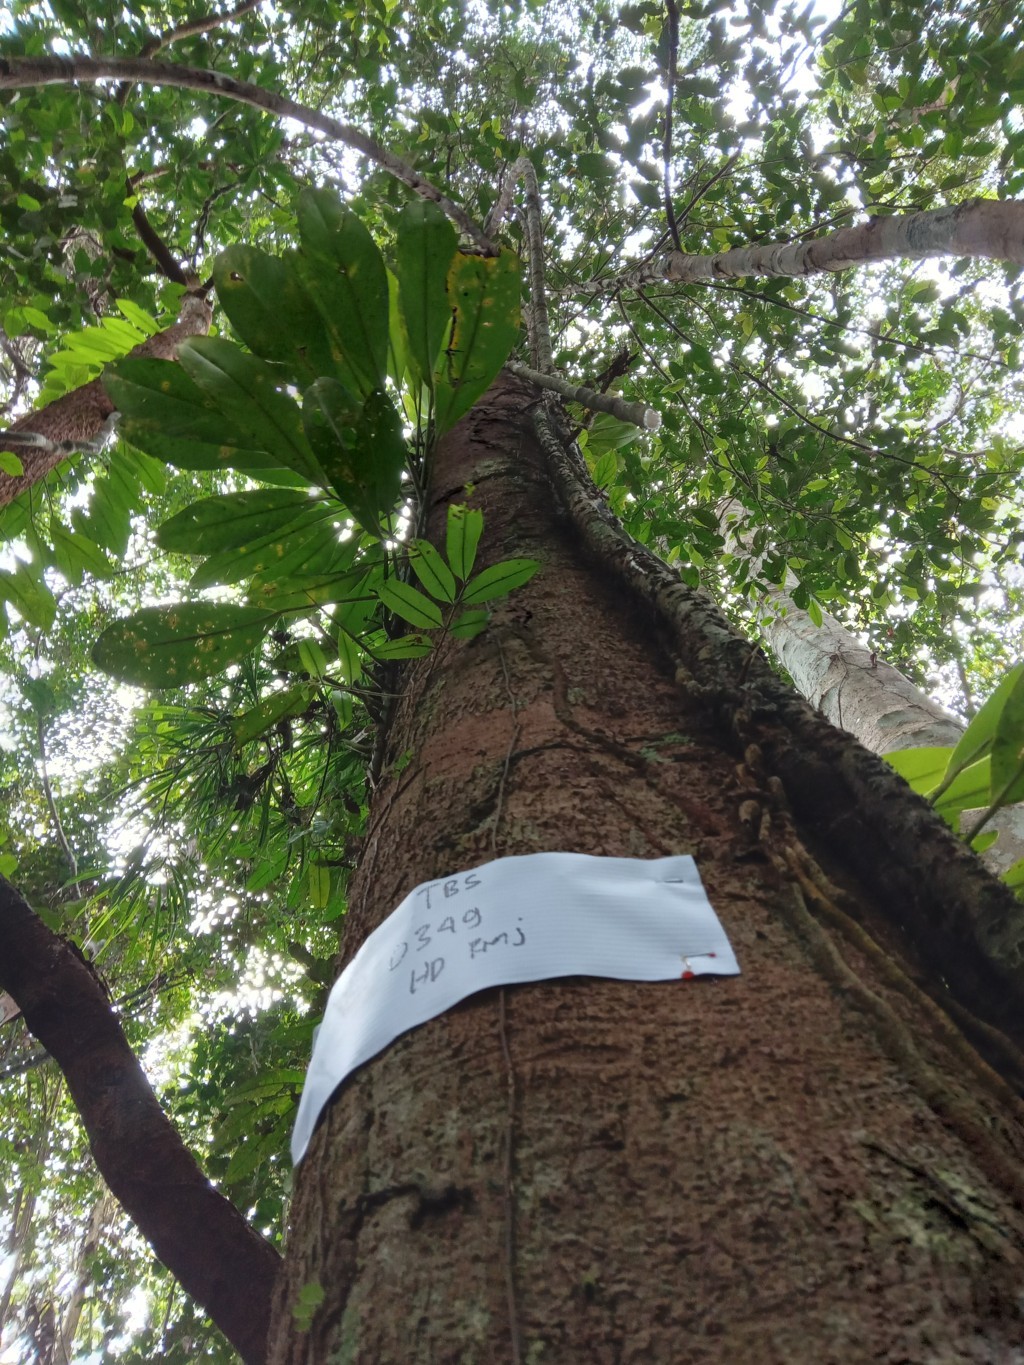 TBS
0349
HD RMj